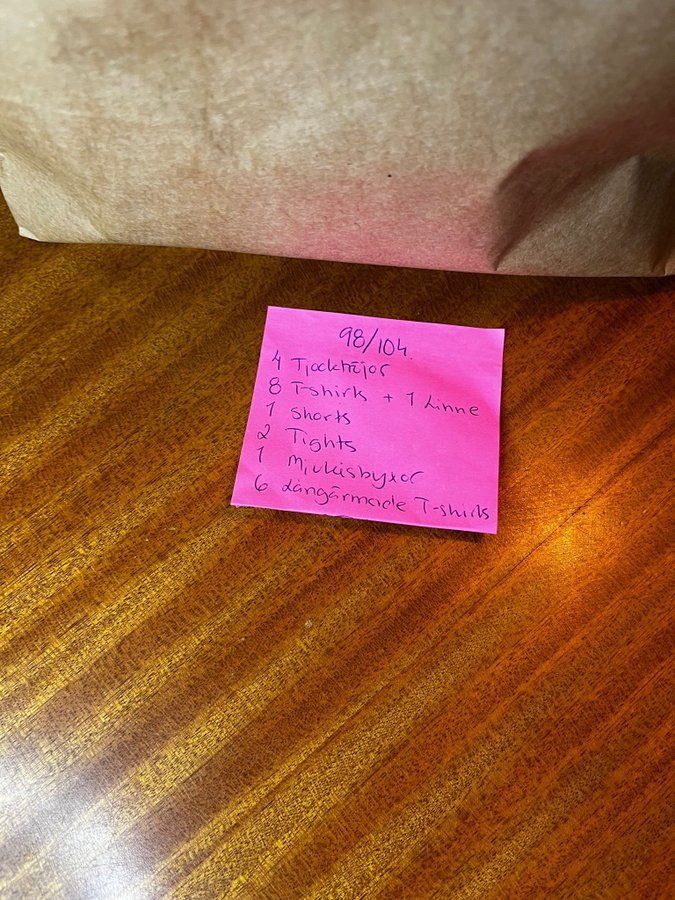 98/104.
4 Tjocktröjor
8 T-shirts + 1 Linne
1 shorts
2 Tights
1 Mjukisbyxor
6 Långärmade T-shirts